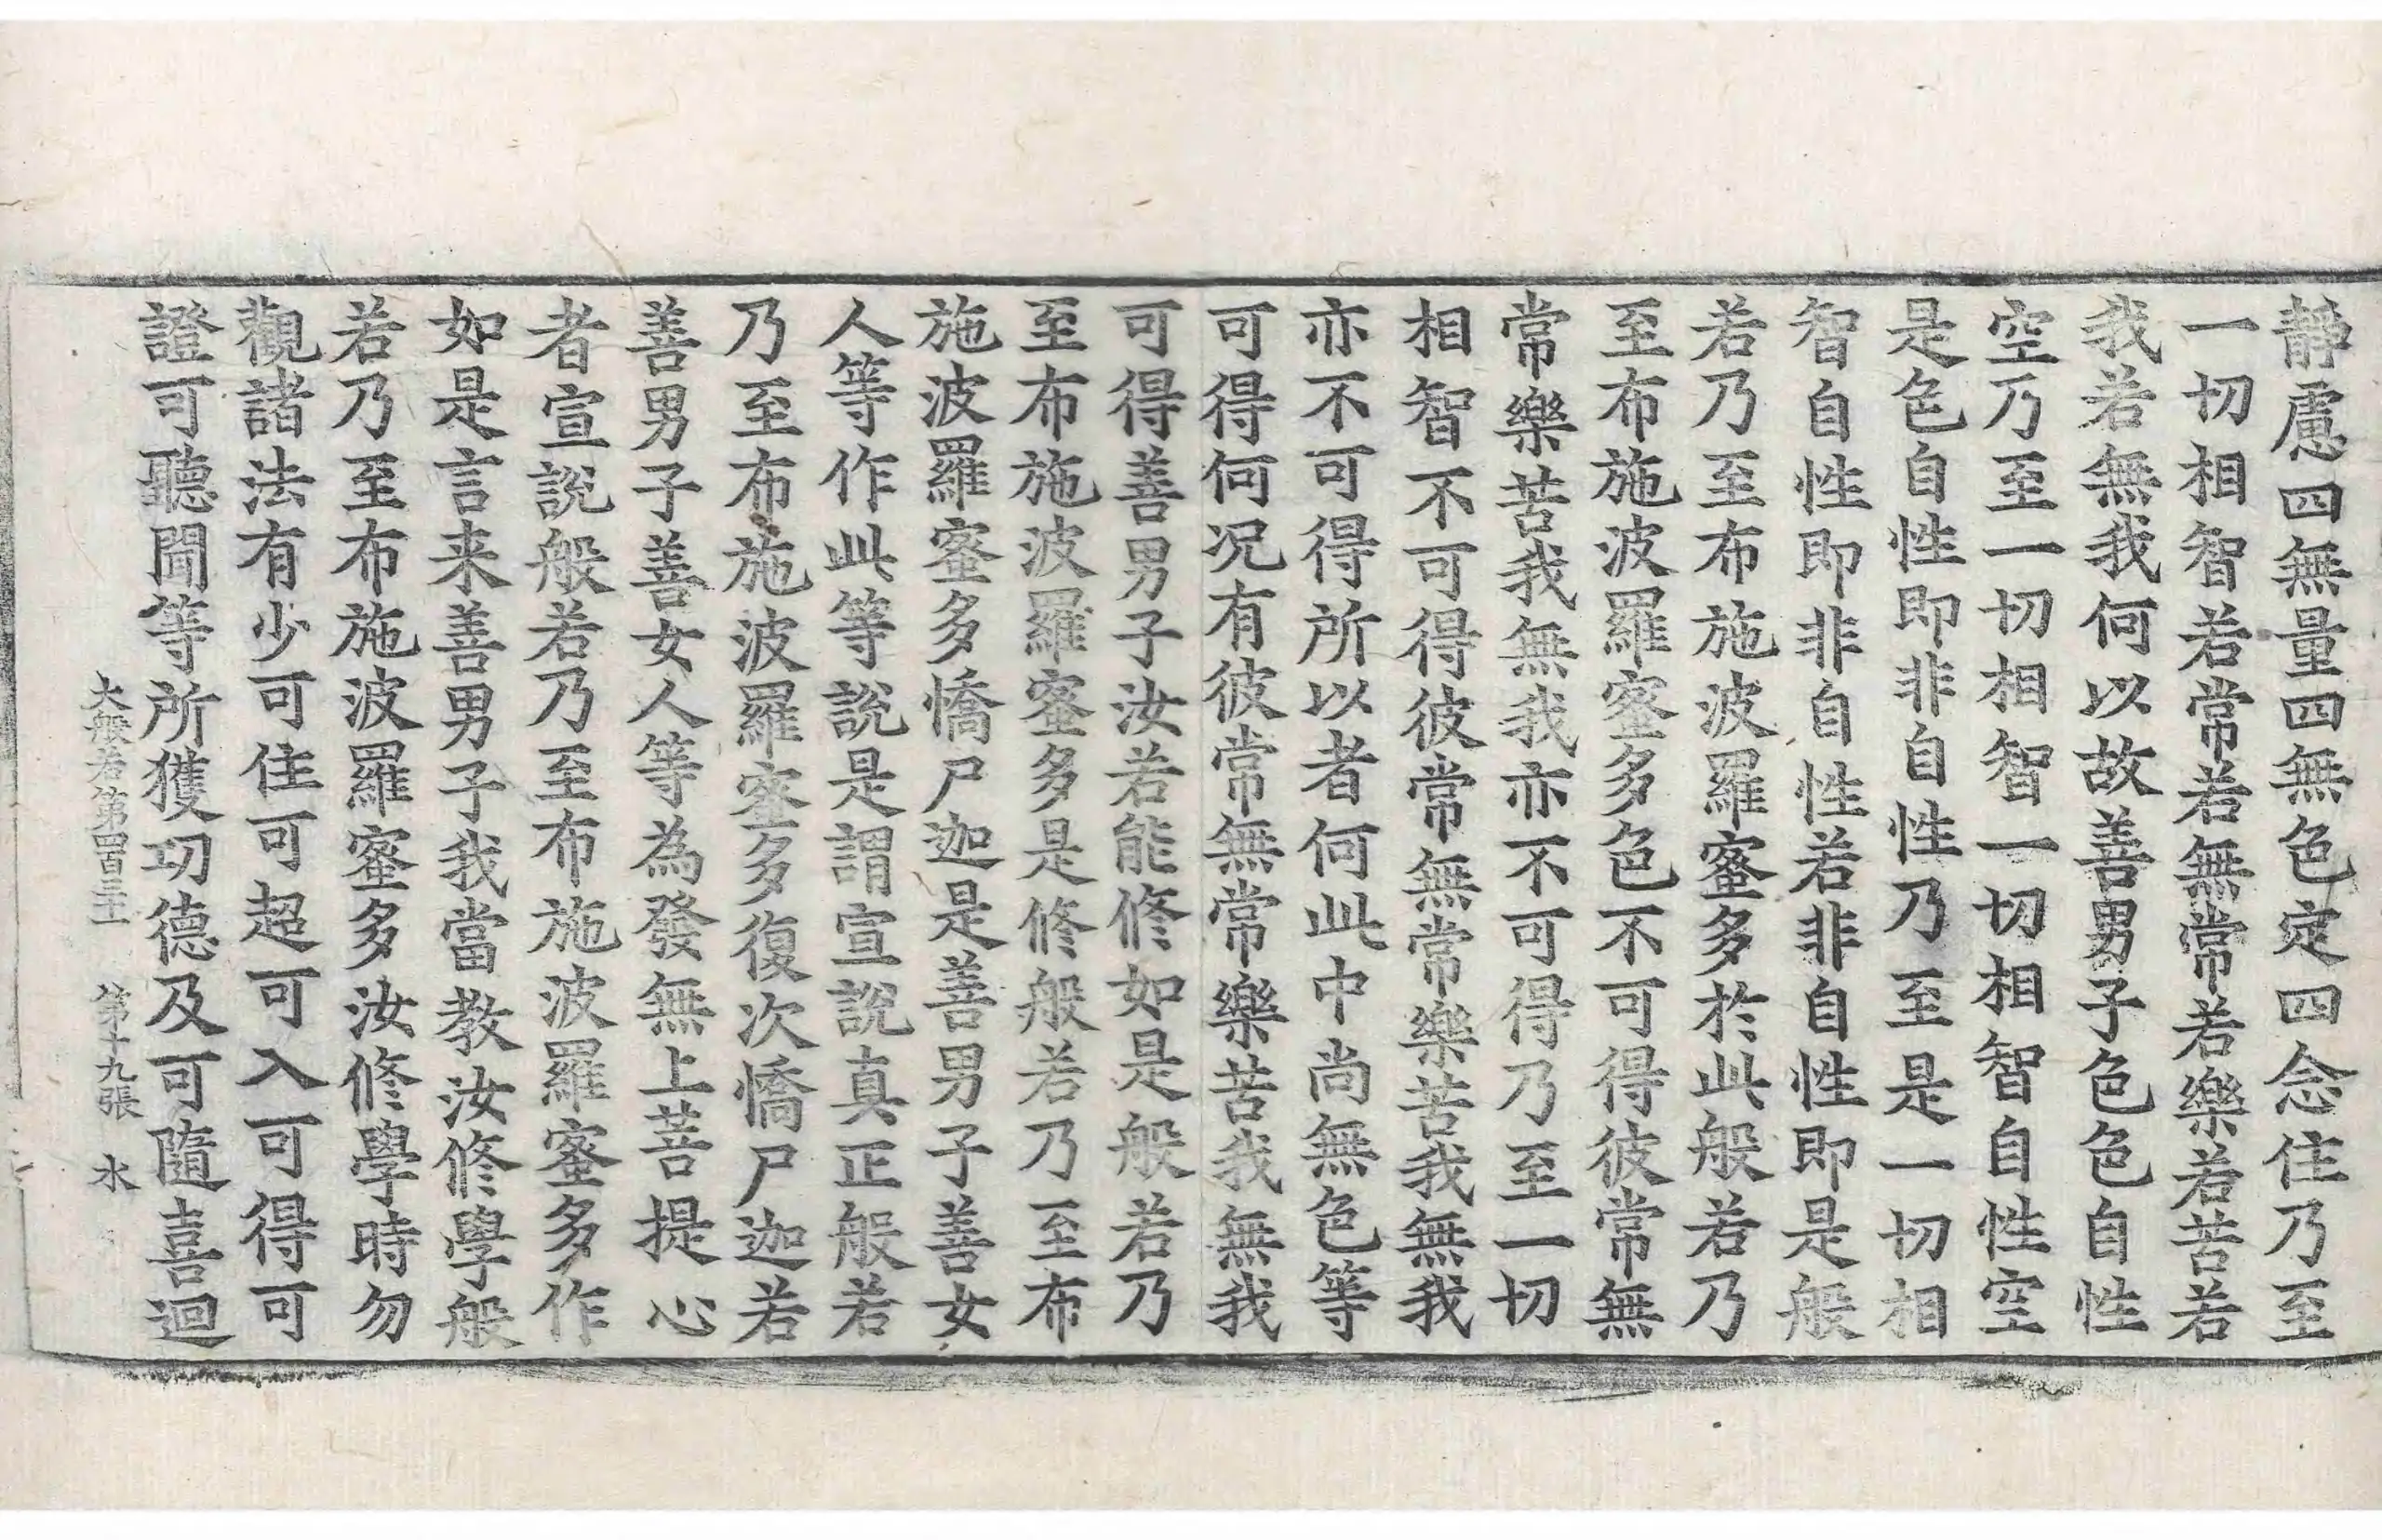 靜慮四無量四無色定四念住乃至
一切相智若常若無常若樂若苦若
我若無我何以故善男子色色自性
空乃至一切相智一切相智自性空
是色自性即非自性乃至是一切相
智自性即非自性若非自性即是般
若乃至布施波羅蜜多於此般若乃
至布施波羅蜜多色不可得彼常無
常樂苦我無我亦不可得乃至一切
相智不可得彼常無常樂苦我無我
亦不可得所以者何此中尚無色等
可得何况有彼常無常樂苦我無我
可得善男子汝若能修如是般若乃
至布施波羅蜜多是修般若乃至布
施波羅蜜多憍尸迦是善男子善女
人等作此等說是謂宣說真正般若
乃至布施波羅蜜多復次憍尸迦若
善男子善女人等為發無上菩提心
者宣說般若乃至布施波羅蜜多作
如是言来善男子我當教汝修學般
若乃至布施波羅蜜多汝修學時勿
觀諸法有少可住可超可入可得可
證可聽聞等所獲功德及可隨喜迴
大般若第四百三十二 第十九張 水